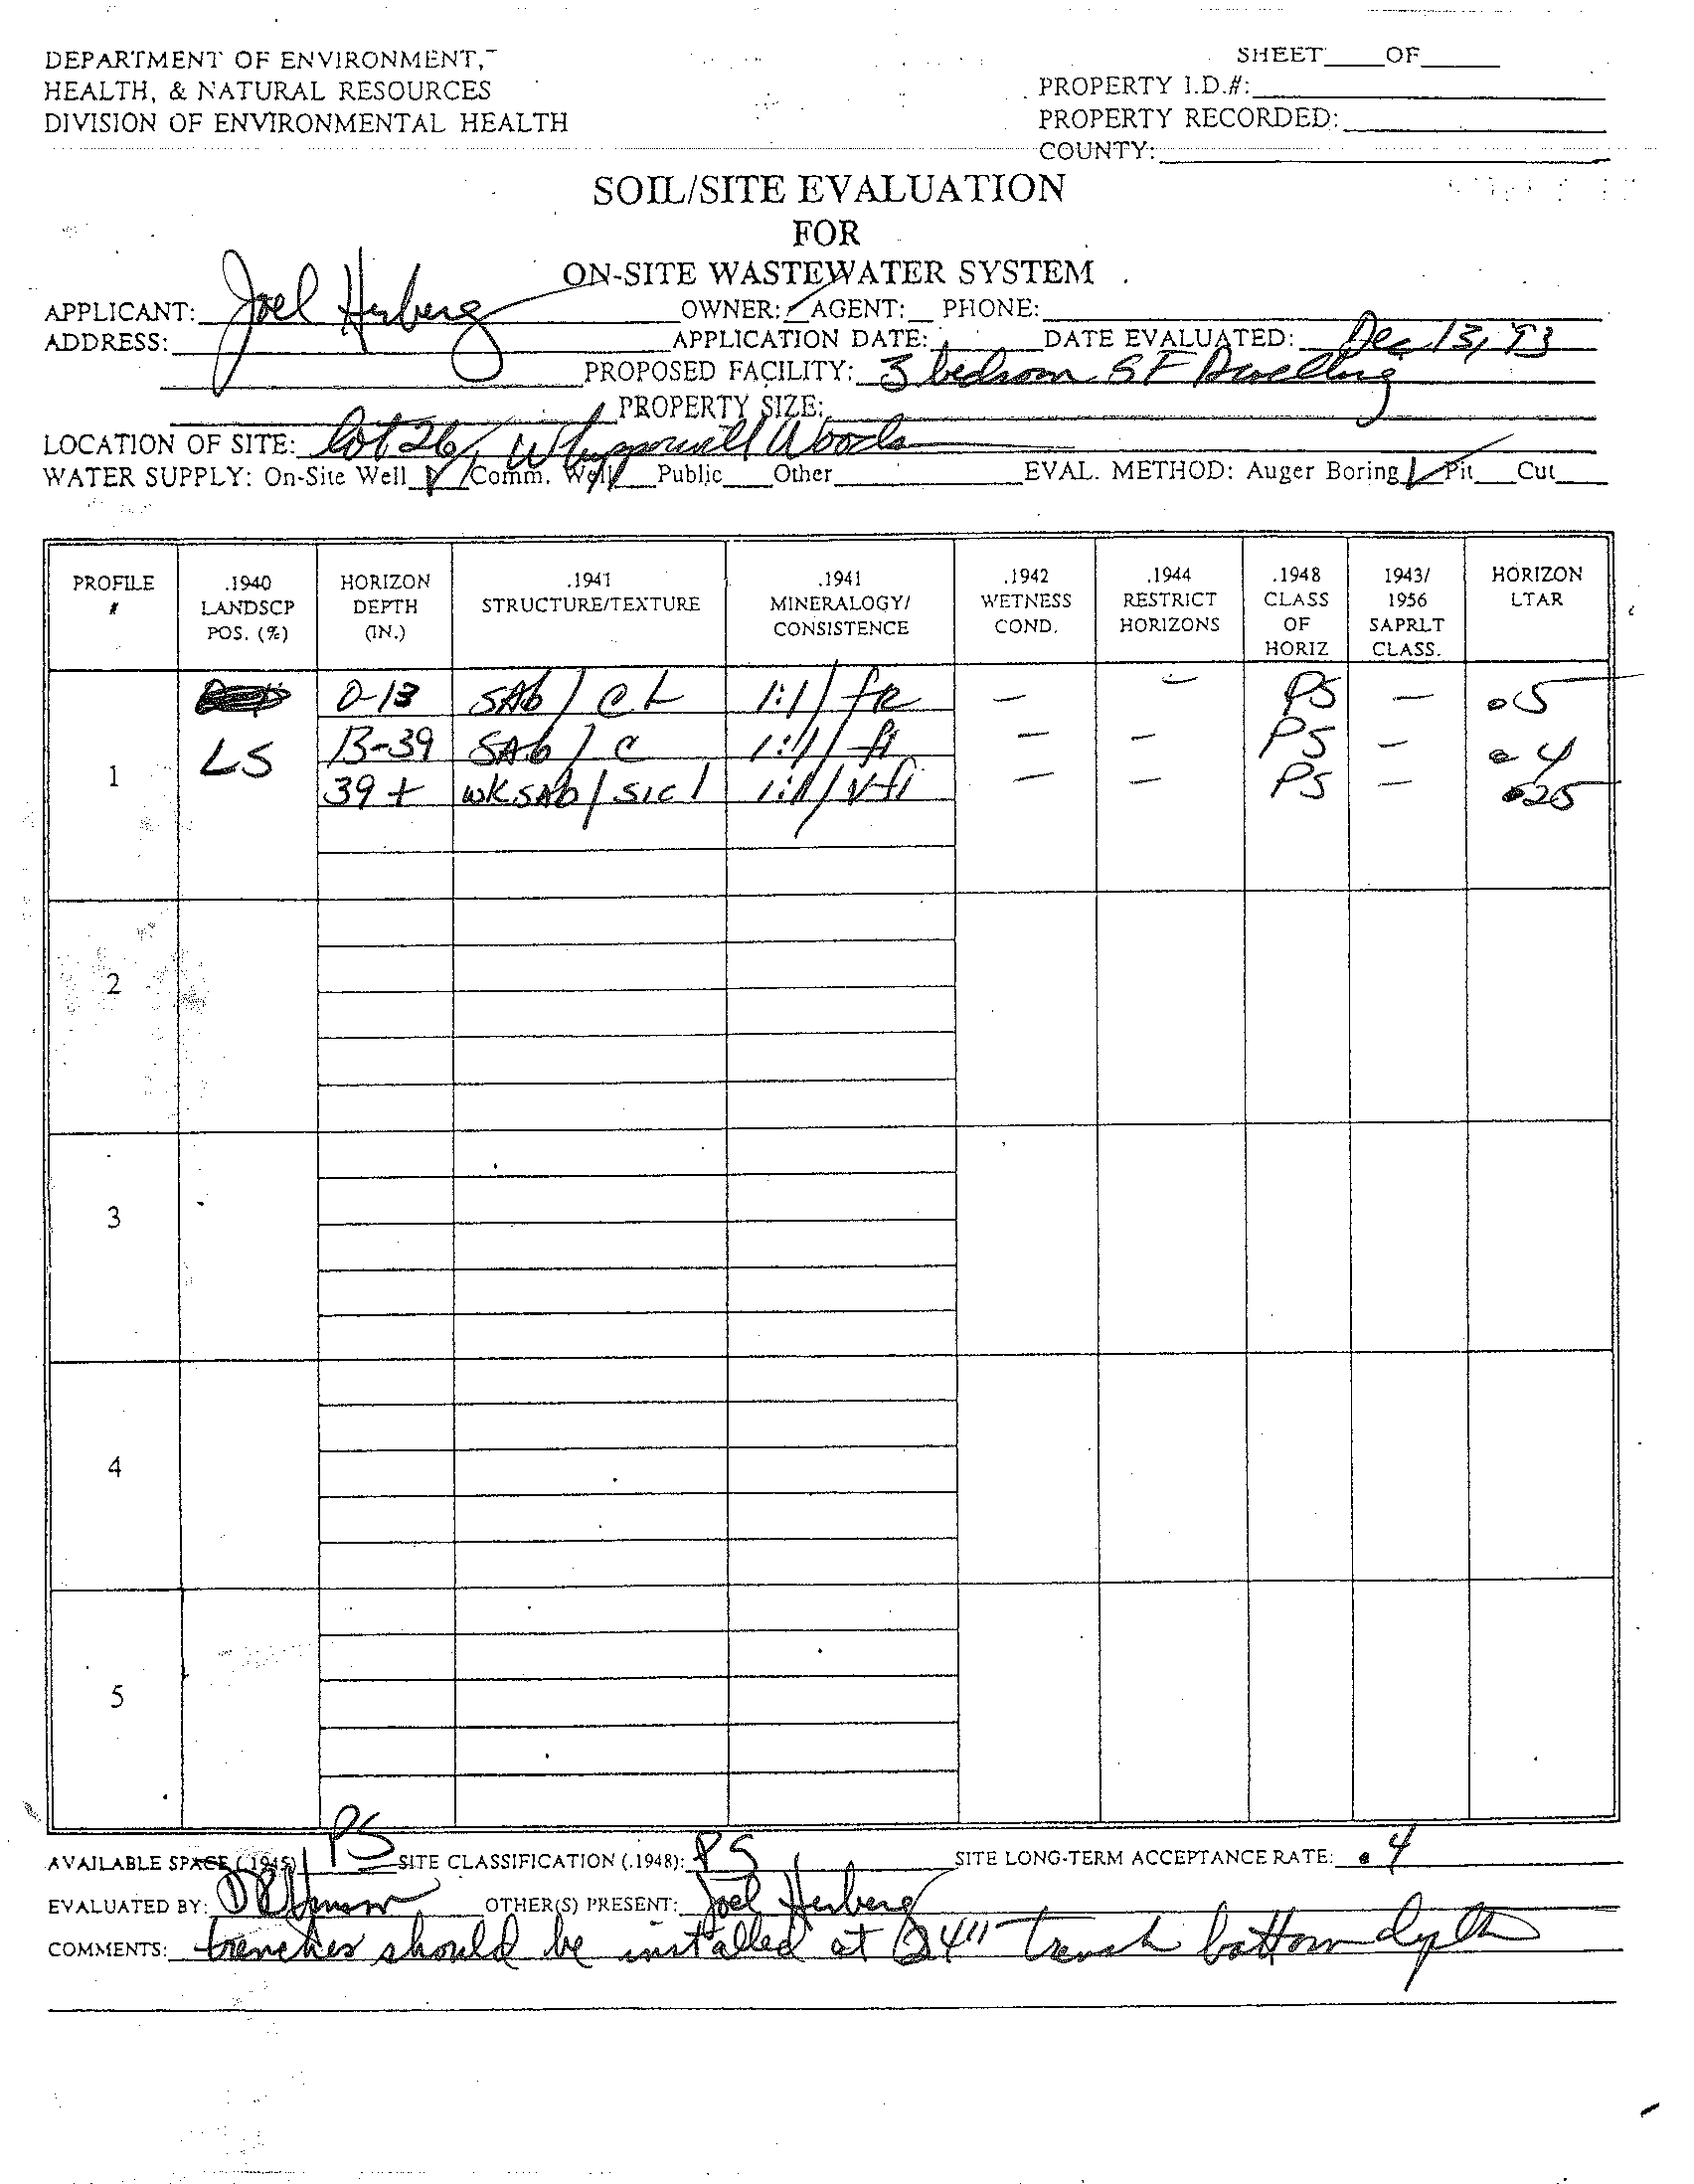 DEPARTMENT OF ENVIRONMENT,
HEALTH, & NATURAL RESOURCES
DIVISION OF ENVIRONMENTAL HEALTH
SHEET____OF____
PROPERTY I.D.#:
PROPERTY RECORDED:
COUNTY:
SOIL/SITE EVALUATION
FOR
ON-SITE WASTEWATER SYSTEM
APPLICANT: Joel Herberg OWNER: ✓ AGENT: __ PHONE:
ADDRESS: APPLICATION DATE: DATE EVALUATED: Dec 13, 93
PROPOSED FACILITY: 3 bedroom SF Dwelling
PROPERTY SIZE:
LOCATION OF SITE: lot 26, Whipporwill Woods
WATER SUPPLY: On-Site Well ✓ Comm. Well __ Public __ Other __ EVAL. METHOD: Auger Boring ✓ Pit __ Cut __
PROFILE # .1940 LANDSCP POS. (%) HORIZON DEPTH (IN.) .1941 STRUCTURE/TEXTURE .1941 MINERALOGY/ CONSISTENCE .1942 WETNESS COND. .1944 RESTRICT HORIZONS .1948 CLASS OF HORIZ 1943/ 1956 SAPRLT CLASS. HORIZON LTAR
0-13 SAb / CL 1:1 / fr — — PS — .5
1 LS 13-39 SAb / C 1:1 / fi — — PS — .4
39 + wk SAb / sicl 1:1 / v-fi — — PS — .25
2
3
4
5
AVAILABLE SPACE (.1945) PS SITE CLASSIFICATION (.1948): PS SITE LONG-TERM ACCEPTANCE RATE: .4
EVALUATED BY: OTHER(S) PRESENT: Joel Herberg
COMMENTS: trenches should be installed at 24" trench bottom depth